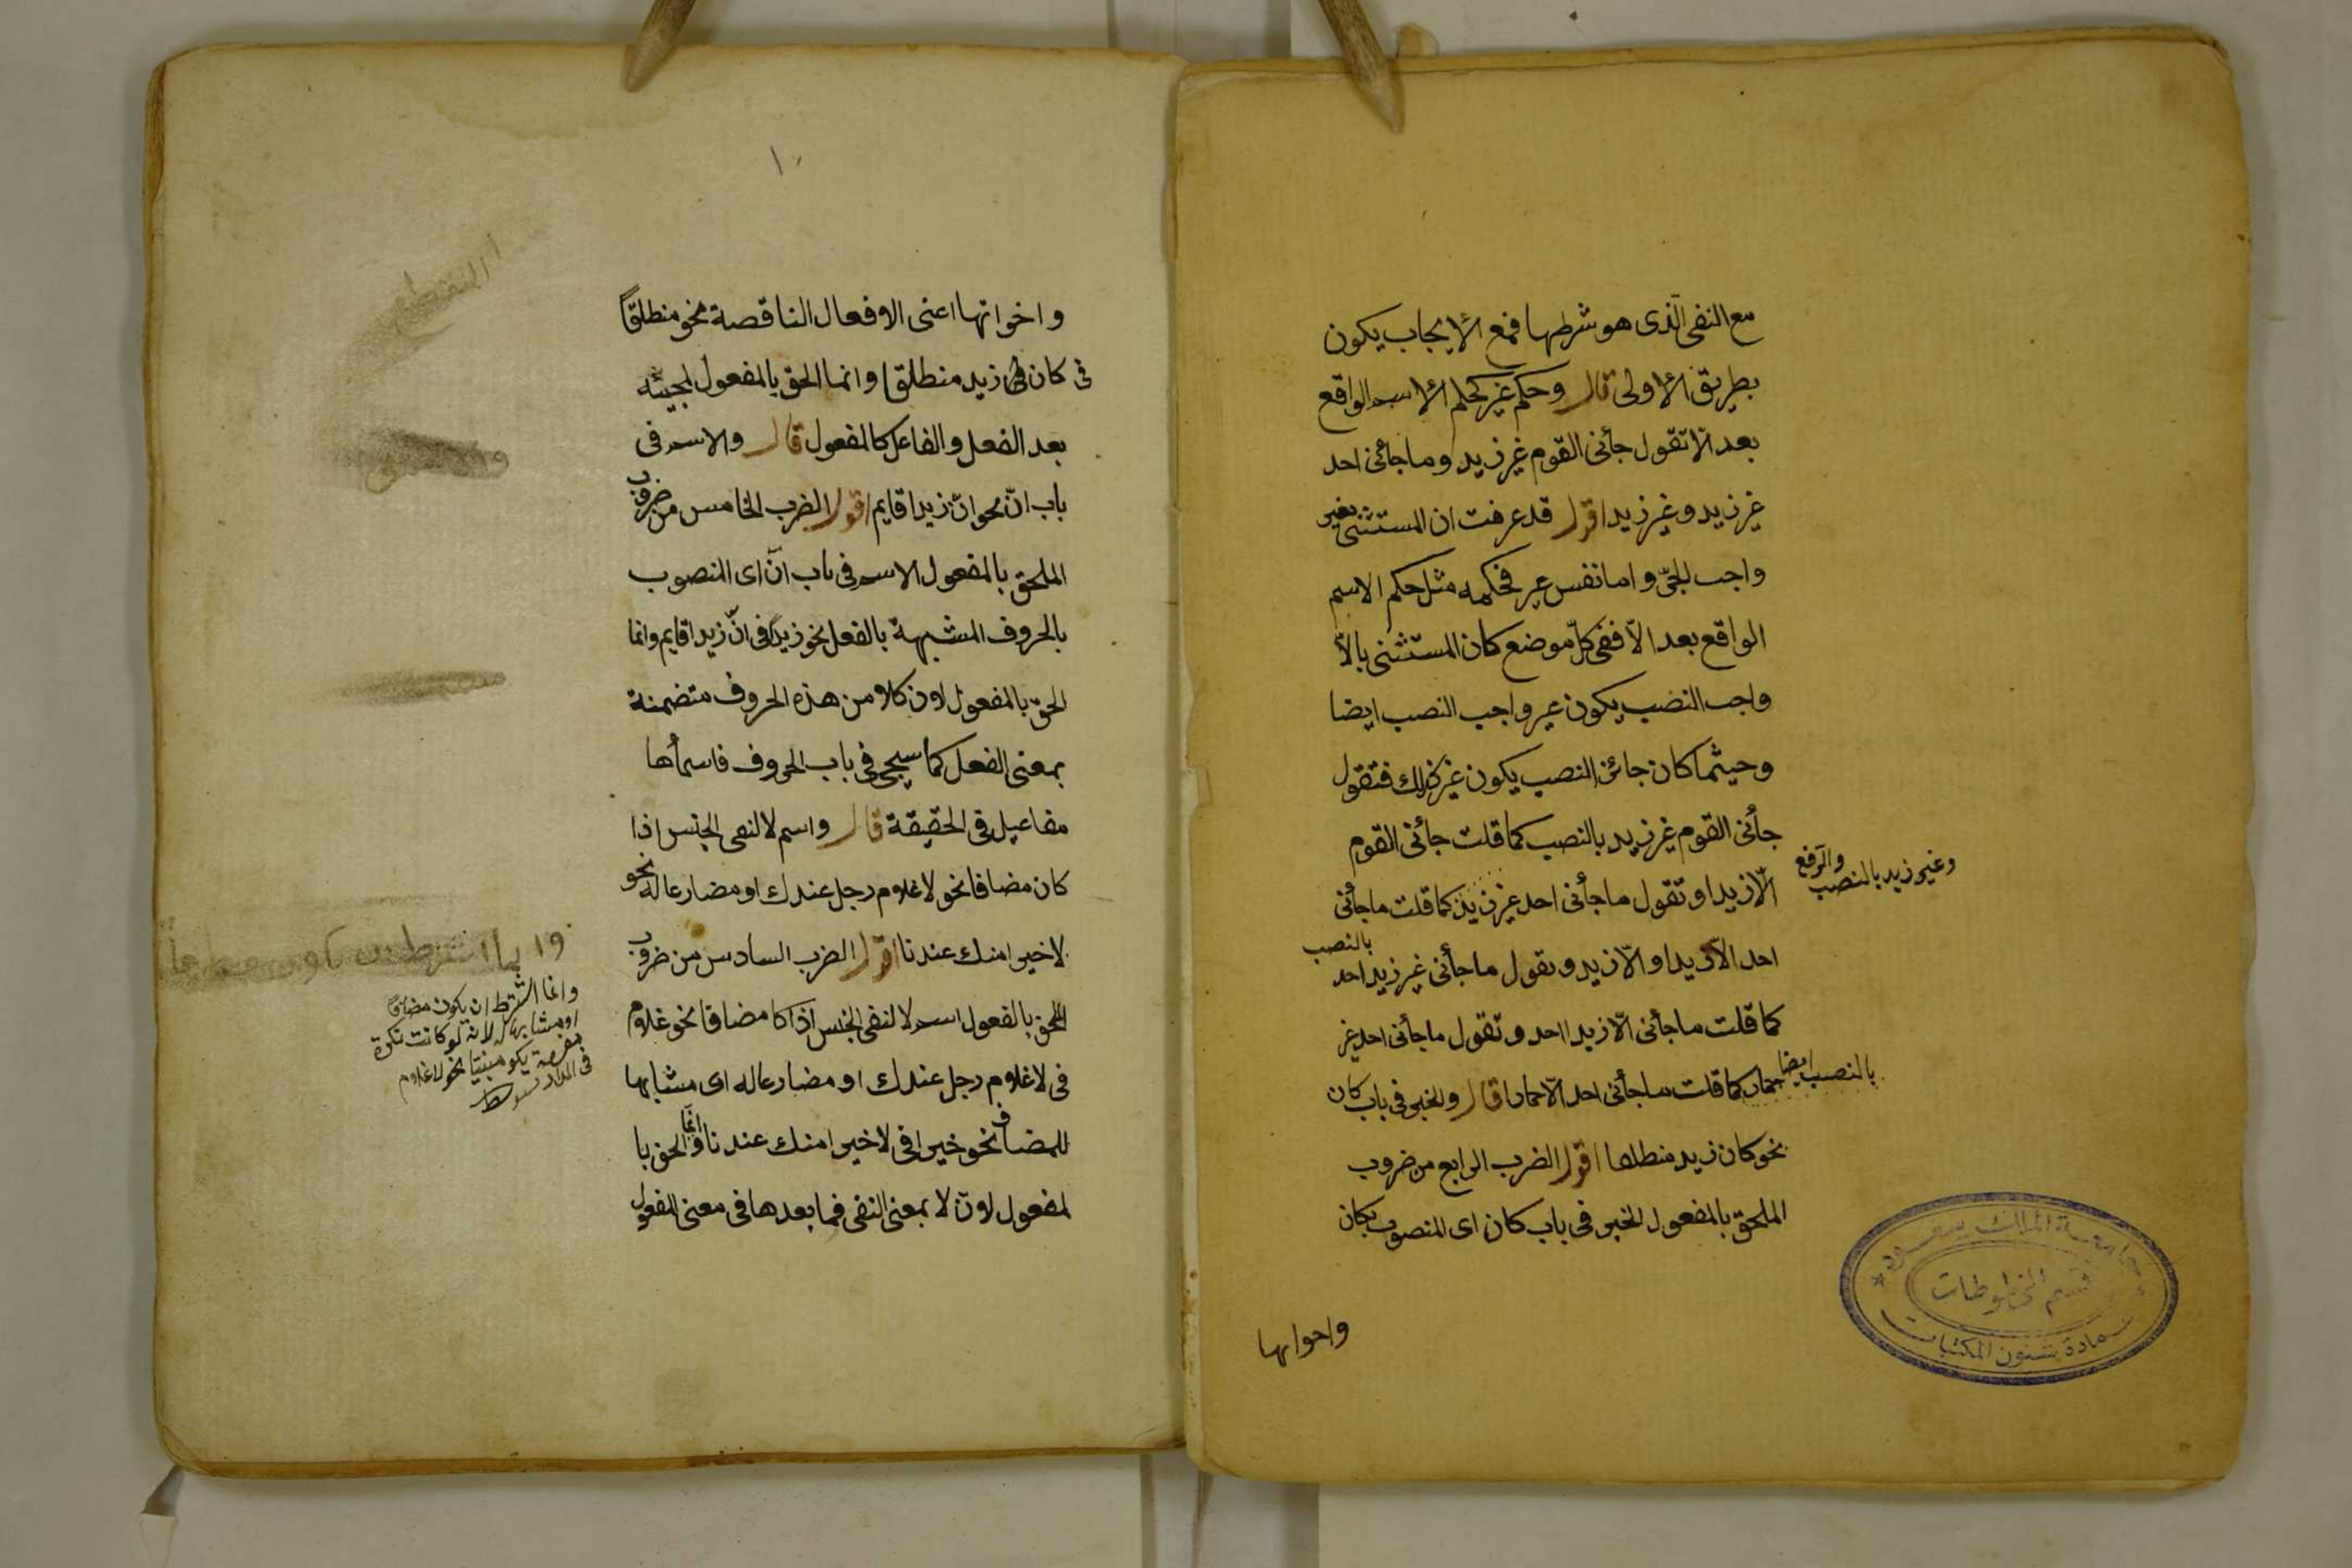 مع النفى الّذى هو شرطها فمع الايجاب يكون
بطريق الاولى قال وحكم غير كحكم الاسم الواقع
بعد الّا تقول جأنى القوم غير زيد وما جأنى احد
غير زيد وغير زيد اقول قد عرفت ان المستثنى بغير
واجب الجرّ واما نفس غير فحكمه مثل حكم الاسم
الواقع بعد الّا ففى كلّ موضع كان المستثنى بالّا
واجب النصب يكون غير واجب النصب ايضا
وحيثما كان جائز النصب يكون غير كذلك فتقول
جأنى القوم غير زيد بالنصب كما قلت جأنى القوم
الّا زيدا وتقول ما جأنى احد غير زيد كما قلت ما جأنى
وغير زيد بالنصب والرفع
احد الّا زيدا والّا زيد وتقول ما جأنى غير زيد احد
بالنصب
كما قلت ما جأنى الّا زيدا احد وتقول ما جأنى احد غير
حمار كما قلت ما جأنى احد الّا حمارا قال والخبر فى باب كان
بالنصب ايضا
نحو كان زيد منطلقا اقول الضرب الرابع من ضروب
الملحق بالمفعول الخبر فى باب كان اى المنصوب بكان
واخواتها
جامعة الملك سعود
قسم المخطوطات
عمادة شئون المكتبات
١٠
واخواتها اعنى الافعال الناقصة نحو منطلقاً
فى كان زيد منطلقا وانما الحق بالمفعول لمجيئه
بعد الفعل والفاعل كالمفعول قال والاسم فى
باب انّ نحو انّ زيدا قايم اقول الضرب الخامس من ضروب
الملحق بالمفعول الاسم فى باب انّ اى المنصوب
بالحروف المشبهة بالفعل نحو زيداً فى انّ زيدا قايم وانما
الحق بالمفعول لان كلا من هذه الحروف متضمنة
بمعنى الفعل كما سيجئ فى باب الحروف فاسمأها
مفاعيل فى الحقيقة قال واسم لا لنفى الجنس اذا
كان مضافا نحو لا غلام رجل عندك او مضارعا له نحو
لا خيرا منك عندنا اقول الضرب السادس من ضروب
الملحق بالمفعول اسم لا لنفى الجنس اذا كا مضافا نحو غلام
فى لا غلام رجل عندك او مضارعا له اى مشابها
للمضاف نحو خيرا فى لا خيرا منك عندنا وانّما الحق با
لمفعول لانّ لا بمعنى النفى فما بعدها فى معنى المفعول
وانما اشترط ان يكون مضافا
او مشابها له لانه لو كانت نكرة
مفردة يكو مبنيّا نحو لا غلام
فى الدار